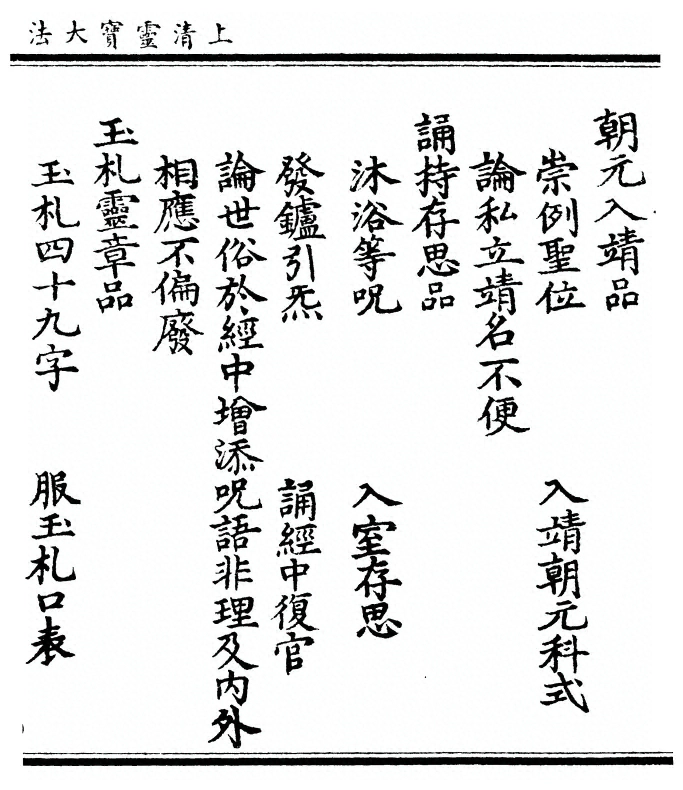 上清靈寶大法
朝元入靖品
崇例聖位 入靖朝元科式
論私立靖名不便
誦持存思品
沐浴等呪 入室存思
發鑪引炁 誦經中復官
論世俗於經中增添呪語非理及內外
相應不偏廢
玉札靈章品
玉札四十九字 服玉札口表